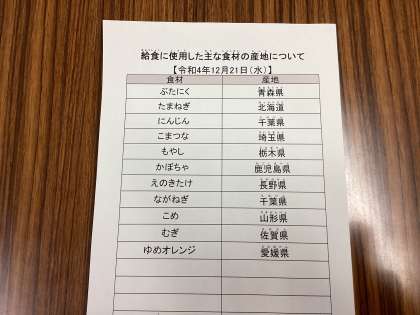 給食に使用した主な食材の産地について
【令和4年12月21日（水）】
食材 産地
ぶたにく 青森県
たまねぎ 北海道
にんじん 千葉県
こまつな 埼玉県
もやし 栃木県
かぼちゃ 鹿児島県
えのきたけ 長野県
ながねぎ 千葉県
こめ 山形県
むぎ 佐賀県
ゆめオレンジ 愛媛県